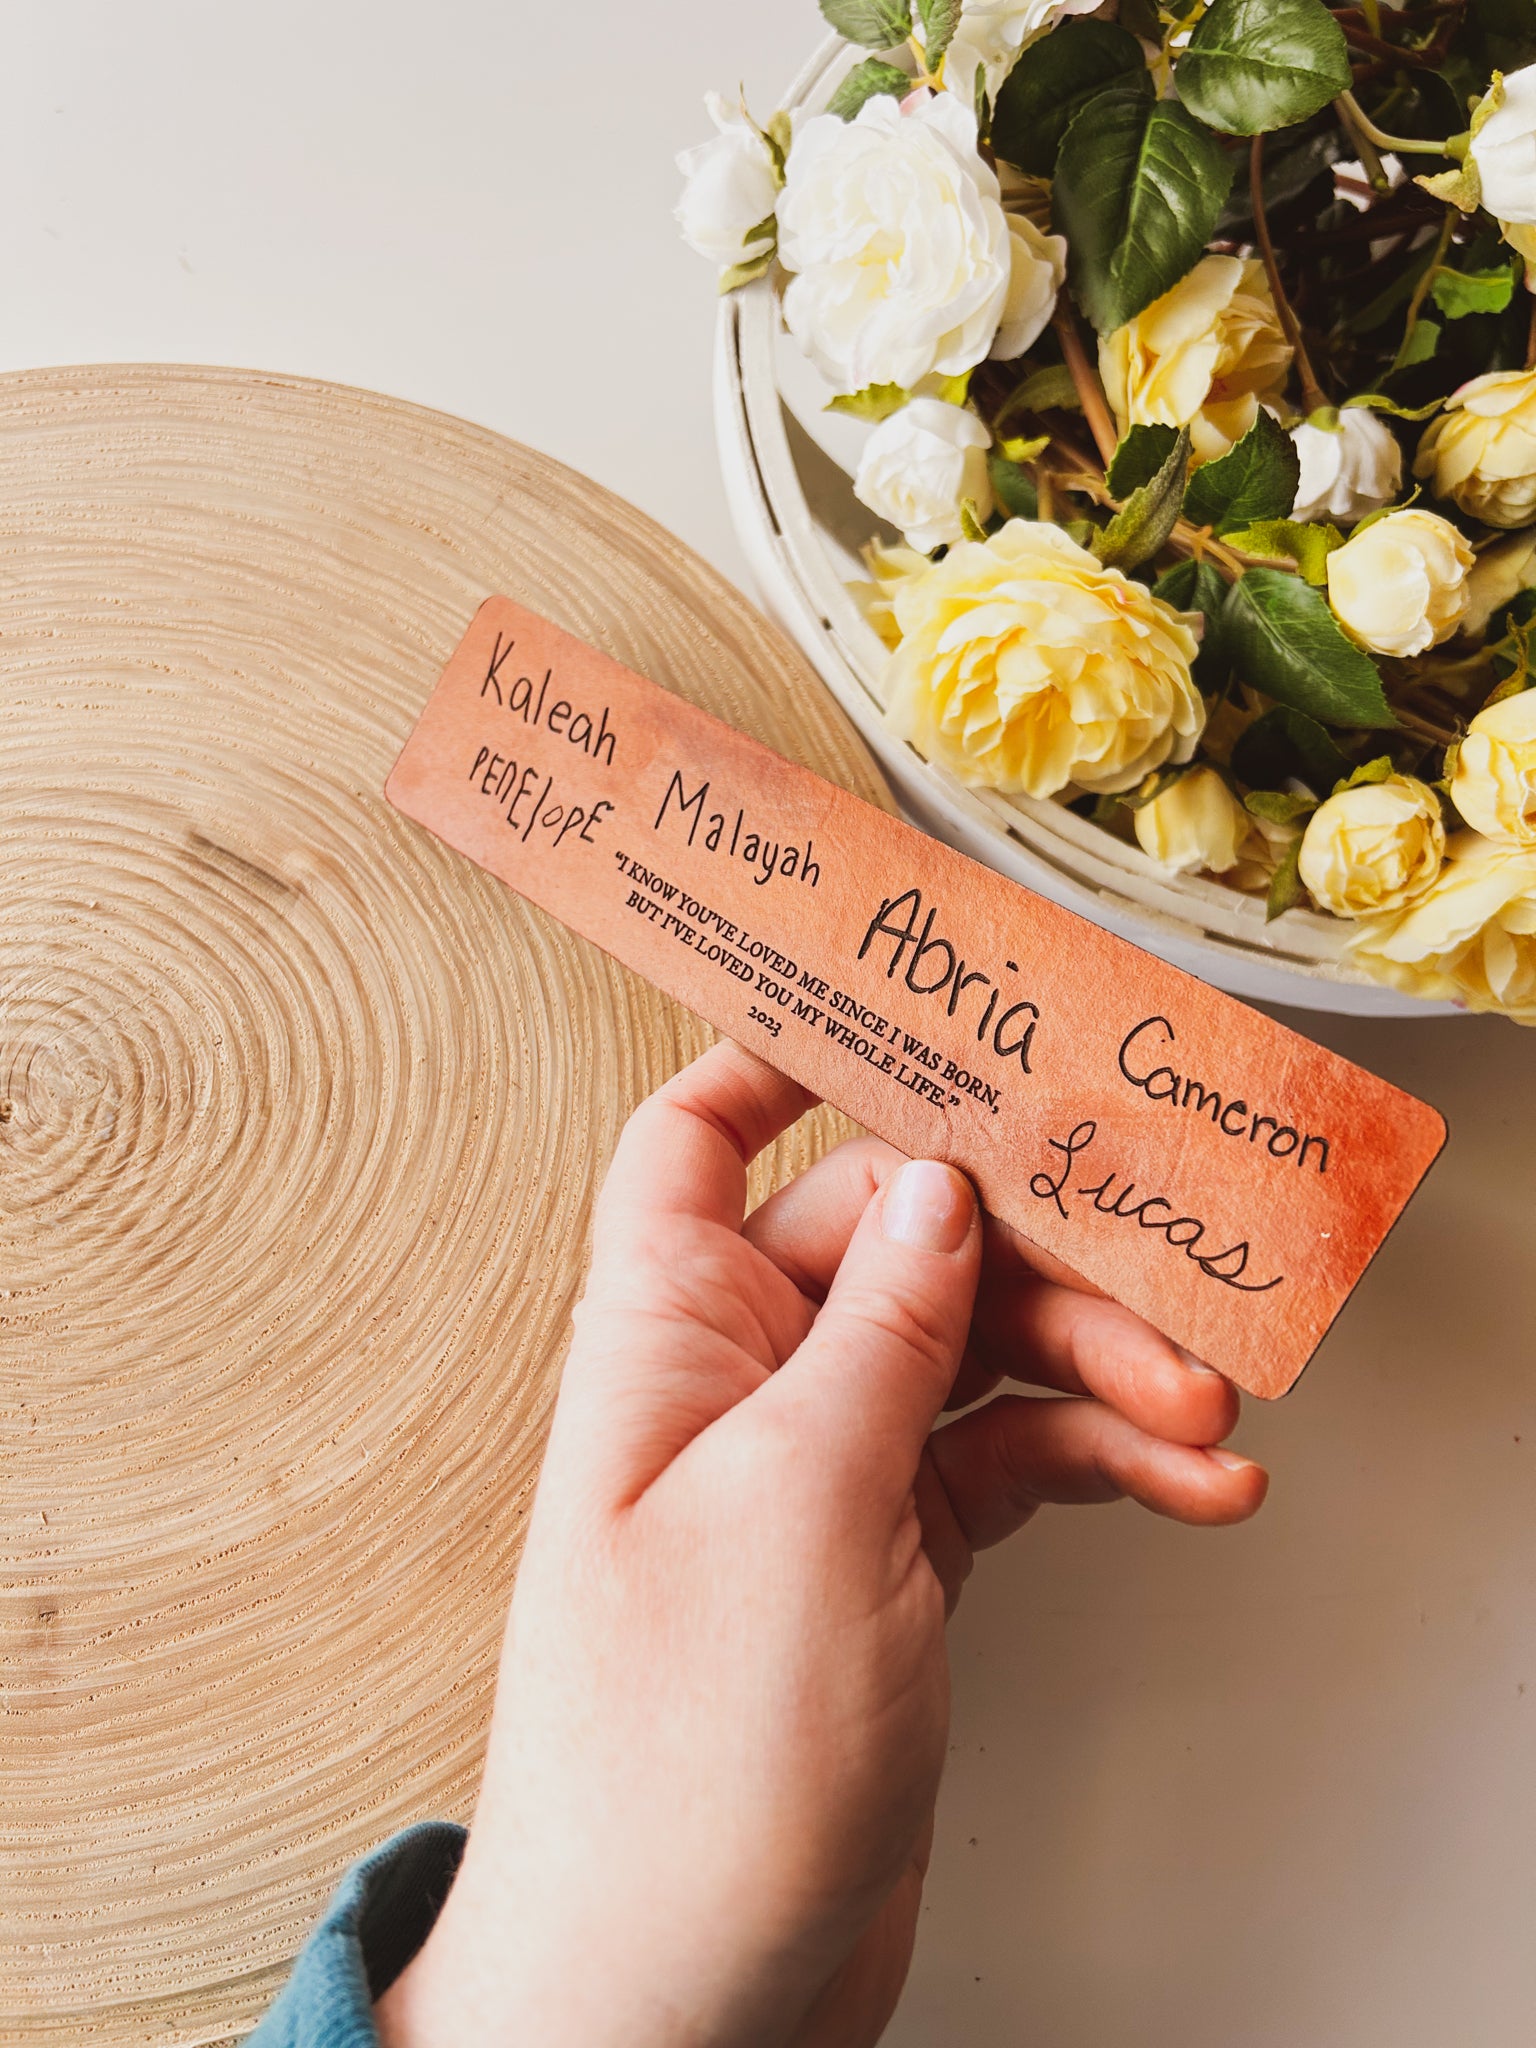 Kaleah Malayah Abria Cameron
PENElOPE
“I KNOW YOU'VE LOVED ME SINCE I WAS BORN,
BUT I'VE LOVED YOU MY WHOLE LIFE.”
2023
Lucas